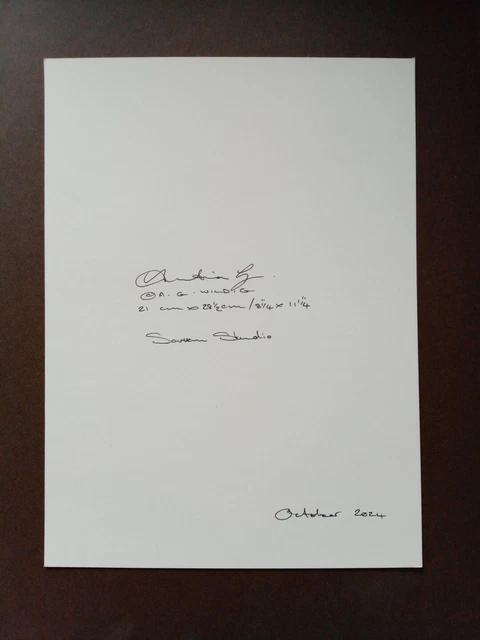 © A. G. WILDIG
21 cm x 28½cm / 8¼ x 11¼
Studio
October 2024